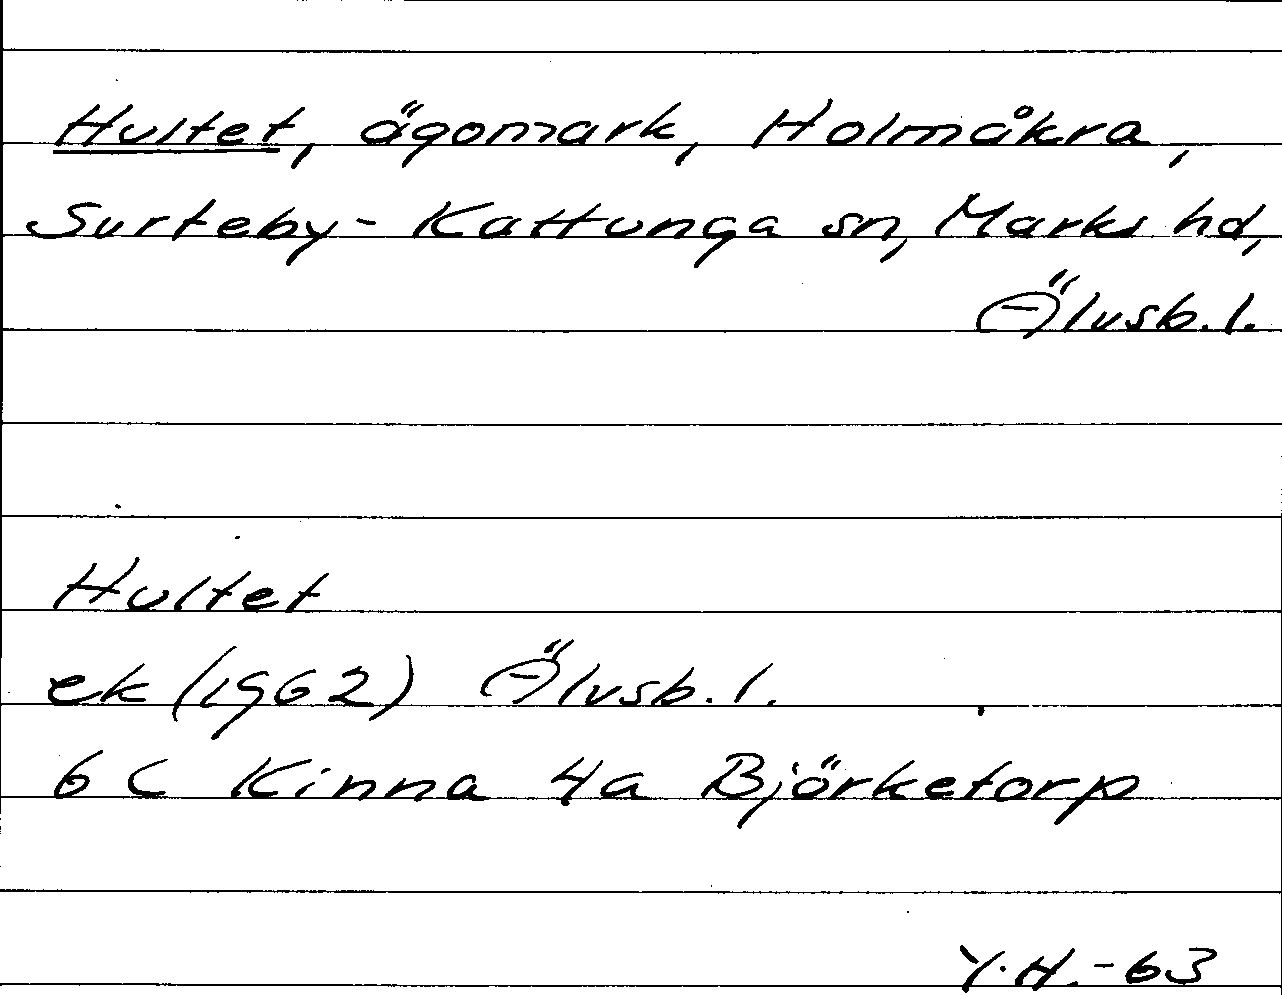 Hultet, ägomark, Holmåkra,
Surteby-Kattunga sn, Marks hd,
Älvsb. l.
Hultet
ek (1962) Älvsb. l.
6 C Kinna 4a Björketorp
Y.H.-63